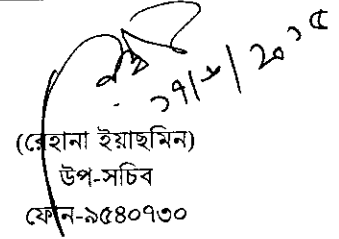 ২০১৫
(রেহানা ইয়াছমিন)
উপ-সচিব
ফোন-৯৫৪০৭৩০